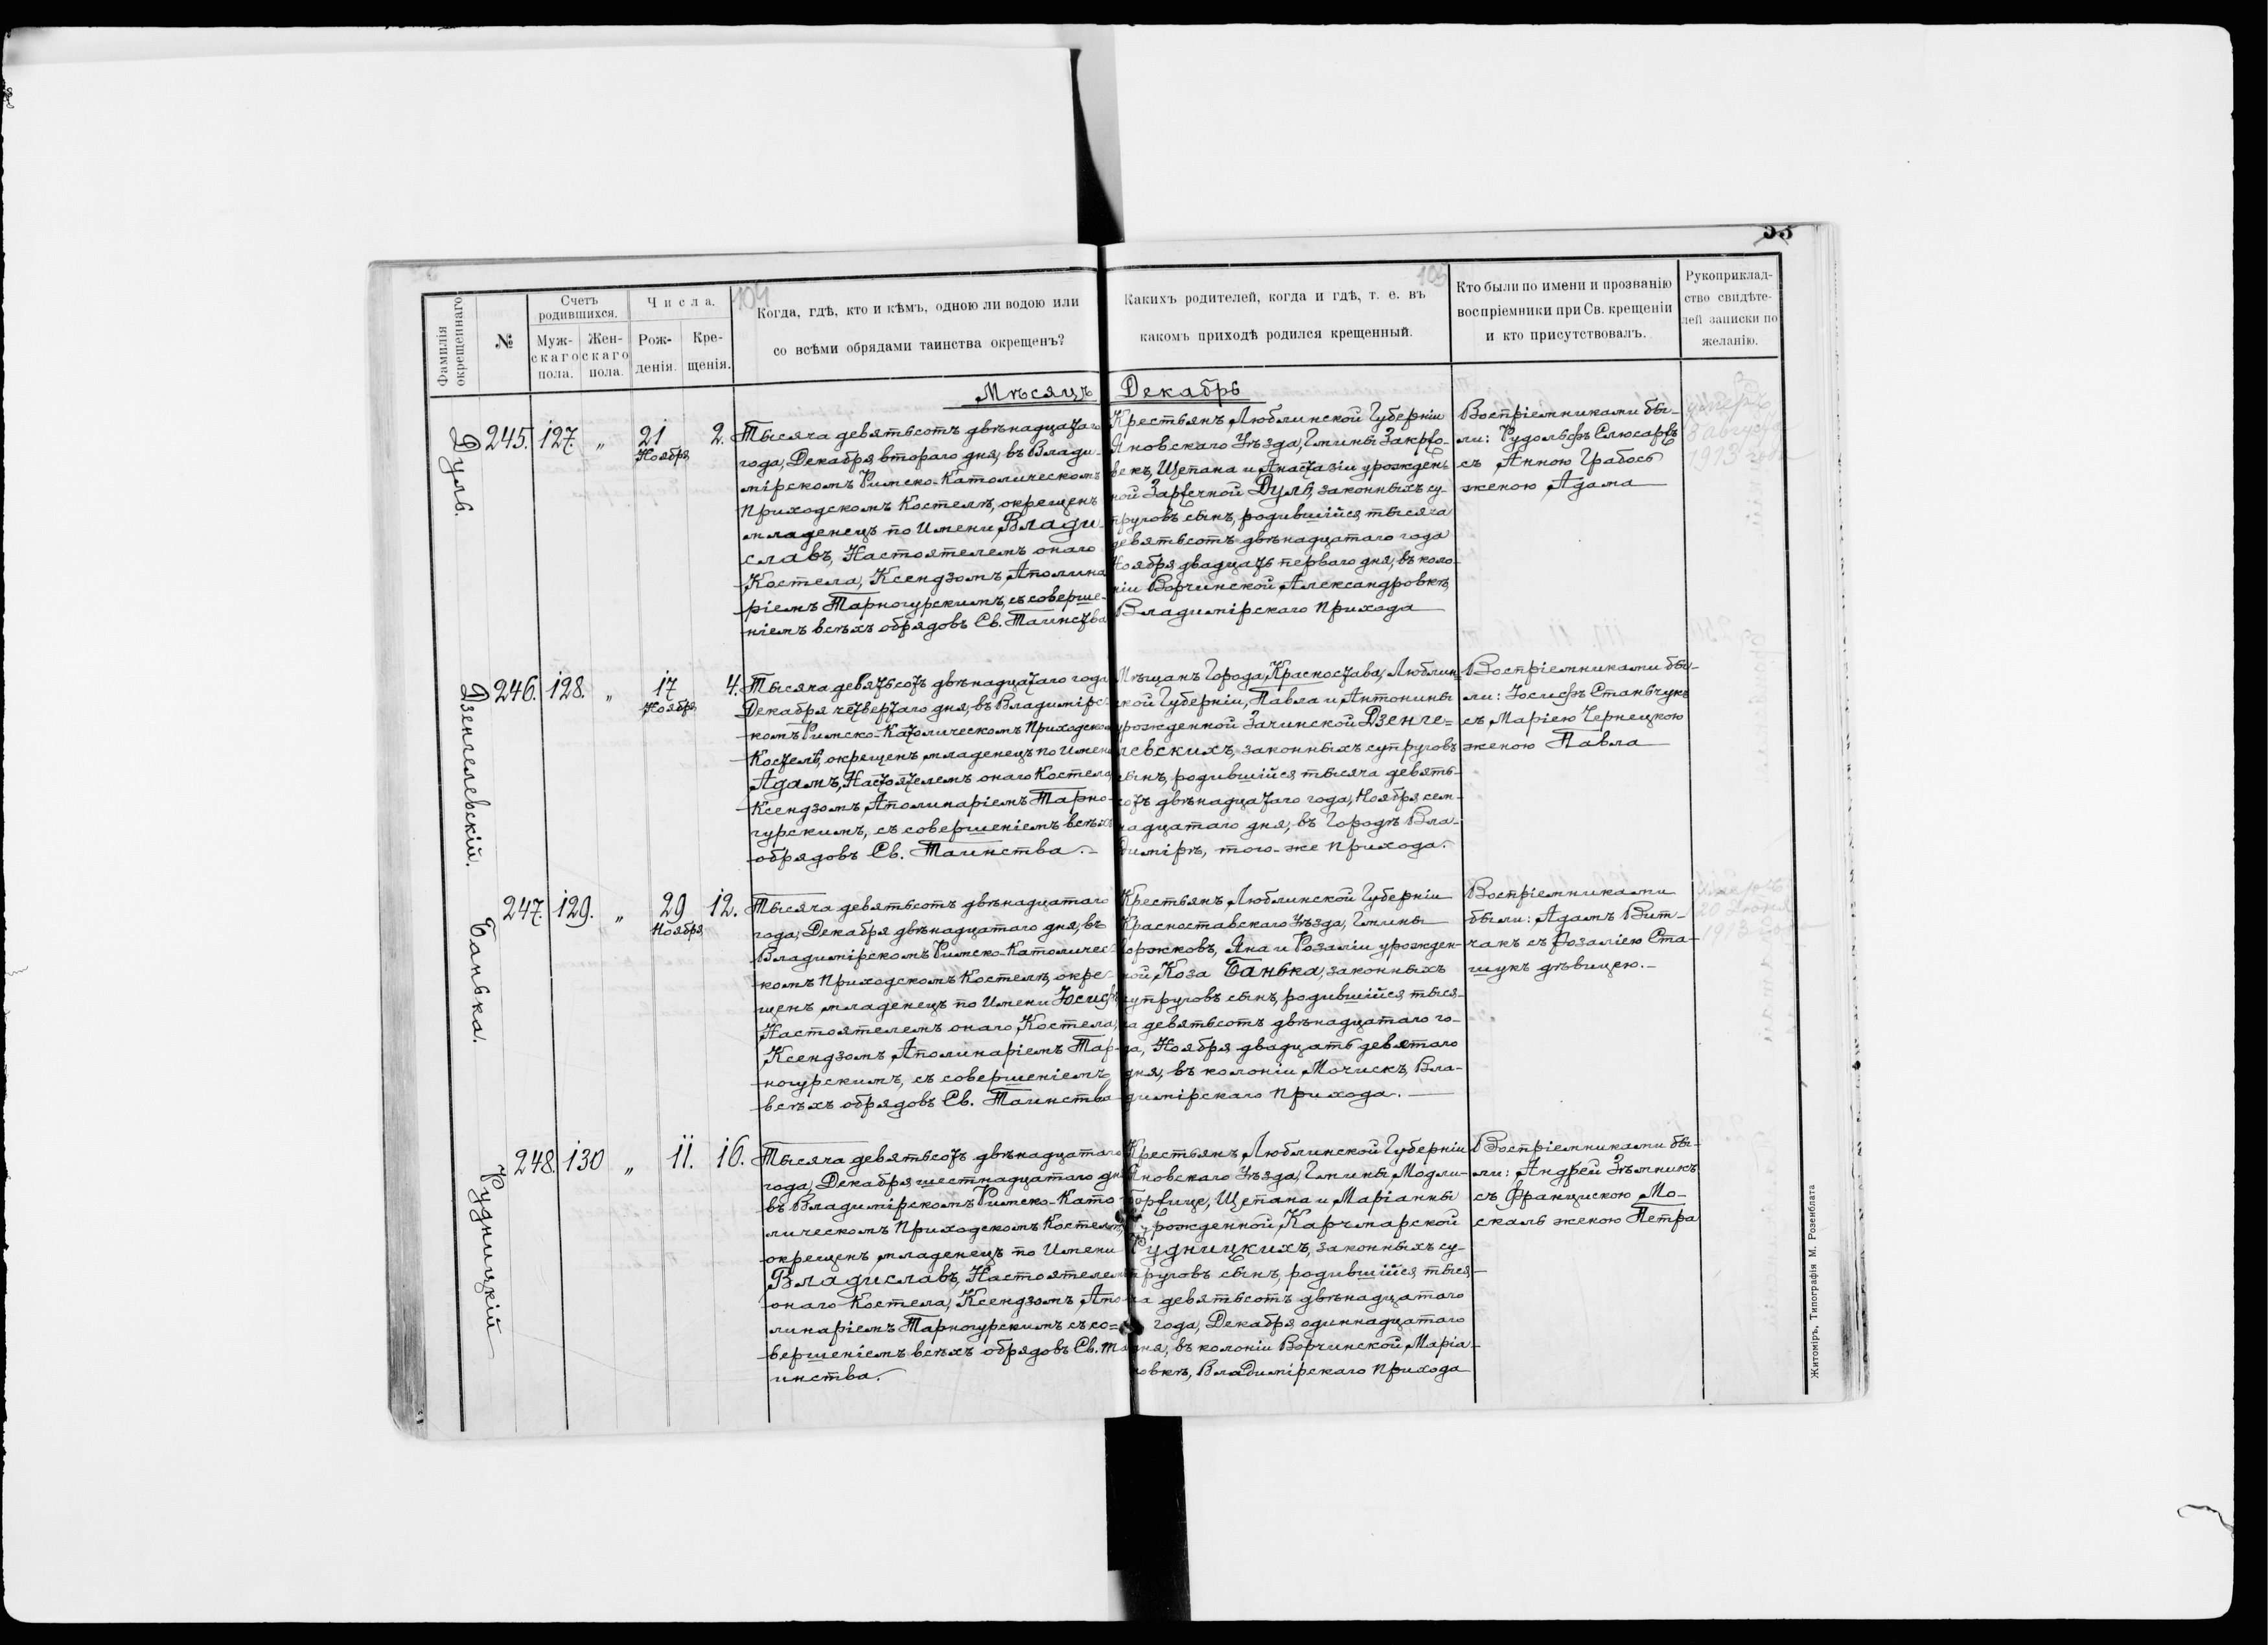 53
104
105
Фамилія окрещеннаго.
№
Счетъ родившихся.
Муж-
скаго
пола.
Жен-
скаго
пола.
Числа.
Рож-
денія.
Кре-
щенія.
Когда, гдѣ, кто и кѣмъ, одною ли водою или
со всѣми обрядами таинства окрещенъ?
Какихъ родителей, когда и гдѣ, т. е. въ
какомъ приходѣ родился крещенный.
Кто были по имени и прозванію
воспріемники при Св. крещеніи
и кто присутствовалъ.
Рукоприклад-
ство свидѣте-
лей записки по
желанію.
Мѣсяцъ Декабрь
Дуль.
245. 127. „ 21 Ноября 2.
Тысяча девятьсотъ двѣнадцатаго
года, Декабря второго дня, въ Влади-
мірскомъ Римско-Католическомъ
Приходскомъ Костелѣ, окрещенъ
младенецъ по Имени Влади-
славъ, Настоятелемъ онаго
Костела, Ксендзомъ Аполина
ріемъ Тарногурскимъ, съ соверше-
ніемъ всѣхъ обрядовъ Св. Таинства
Крестьянъ Люблинской Губерніи
Яновскаго Уѣзда, Гмины Закрѣо-
векъ, Щепана и Анастазіи урожден
ной Зарѣчной Дуль, законныхъ су-
пруговъ сынъ, родившійся тысяча
девятьсотъ двѣнадцатаго года
Ноября двадцать перваго дня, въ коло-
ніи Ворчинской Александровкѣ,
Владимірскаго Прихода
Воспріемниками бы-
ли: Рудольфъ Слюсарѣ
съ Анною Грабось
женою Адама
умеръ
8 августа
1913 года
Дзенгелевскій.
246. 128. „ 17 Ноября 4.
Тысяча девятьсотъ двѣнадцатаго года
Декабря четвертаго дня, въ Владимірс-
комъ Римско-Католическомъ Приходском
Костелѣ, окрещенъ младенецъ по Имени
Адамъ, Настоятелемъ онаго Костела,
Ксендзомъ Аполинаріемъ Тарно-
гурскимъ, съ совершеніемъ всѣхъ
обрядовъ Св. Таинства.-
Мѣщанъ Города Красностава, Люблинс-
кой Губерніи, Павла и Антонины
урожденной Зачинской Дзенге=
левскихъ, законныхъ супруговъ
сынъ, родившійся тысяча девять-
сотъ двѣнадцатаго года, Ноября сем-
надцатаго дня, въ Городѣ Вла-
димірѣ, того-же Прихода.
Воспріемниками бы-
ли: Іосифъ Станьчукъ
съ Маріею Чернецкою
женою Павла
Банька.
247. 129. „ 29 Ноября 12.
Тысяча девятьсотъ двѣнадцатаго
года, Декабря двѣнадцатаго дня, въ
Владимірскомъ Римско-Католичес-
комъ Приходскомъ Костелѣ, окре-
щенъ младенецъ по Имени Юсифъ
Настоятелемъ онаго Костела,
Ксендзомъ Аполинаріемъ Тар-
ногурскимъ, съ совершеніемъ
всѣхъ обрядовъ Св. Таинства
Крестьянъ Люблинской Губерніи
Красноставскаго Уѣзда, Гмины
Жорковъ, Яна и Розаліи урожден-
ной Коза Банька, законныхъ
супруговъ сынъ, родившійся тыся-
ча девятьсотъ двѣнадцатаго го-
да, Ноября двадцать девятаго
дня, въ колоніи Мочискъ, Вла-
димірскаго Прихода.
Воспріемниками
были: Адамъ Вит-
чакъ съ Розаліею Ста-
шукъ дѣвицею.-
Умеръ
20 Іюня
1913 года
Рудницкій
248. 130 „ 11. 16.
Тысяча девятьсотъ двѣнадцатаго
года, Декабря шестнадцатаго дня
въ Владимірскомъ Римско-Като-
лическомъ Приходскомъ Костелѣ,
окрещенъ младенецъ по Имени
Владиславъ, Настоятелемъ
онаго Костела, Ксендзомъ Апо-
линаріемъ Тарногурскимъ съ со=
вершеніемъ всѣхъ обрядовъ Св. Та
инства.
Крестьянъ Люблинской Губерніи
Яновскаго Уѣзда, Гмины Модли-
боржице, Щепана и Маріанны
урожденной Карчмарской
Рудницкихъ, законныхъ су-
пруговъ сынъ, родившійся тыся-
ча девятьсотъ двѣнадцатаго
года, Декабря одиннадцатаго
дня, въ колоніи Ворчинской Маріа-
новкѣ, Владимірскаго Прихода
Воспріемниками бы-
ли: Андрей Зѣмникъ
съ Францискою Мо-
скаль женою Петра
Житоміръ, Типографія М. Розенблата